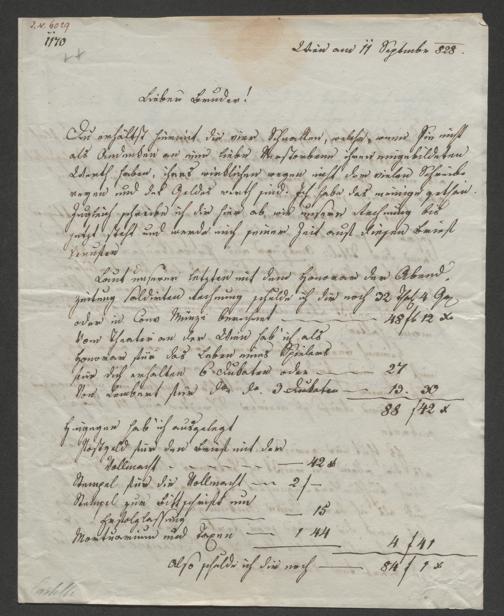 I.N. 6029
1170
Wien am 11 Septembr 828.
Lieber Bruder!
Du erhältst hiermit die vier Schnallen, welche, wenn sie nicht
als Andenken an eine liebe Verstorbene ihren eingebildeten
Werth haben, ihres wirklichen wegen nicht der vielen Schreibe-
reyen und des Geldes werth sind. Ich habe das meinige gethan.
Zugleich schreibe ich dir hier ab, wie unsere Rechnung bis
jetzt steht und werde mich seiner Zeit auf diesen Brief
Laut unserer letzten mit dem Honorar der Abend
zeitung saldirten Rechnung schulde ich dir noch 32 Thl 4 Gr
oder in Conv Münze berechnet — 48 f 12 x
Vom Theater an der Wien hab' ich als
Honorar für das Leben eines Spielers
für dich erhalten 6 Dukaten oder — 27
Von Lembert für do. do. 3 Dukaten — 13. 30
88 f 42 x
Hingegen hab' ich ausgelegt
Postgeld für den Brief mit der
Vollmacht — 42 x
Stempel für die Vollmacht — 2 f —
Stempel zur Bittschrift um
Erfolglassung — 15
Mortuarium und Taxen — 1 44
4 f 41
Also schulde ich dir noch — 84 f 1 x
Castelli